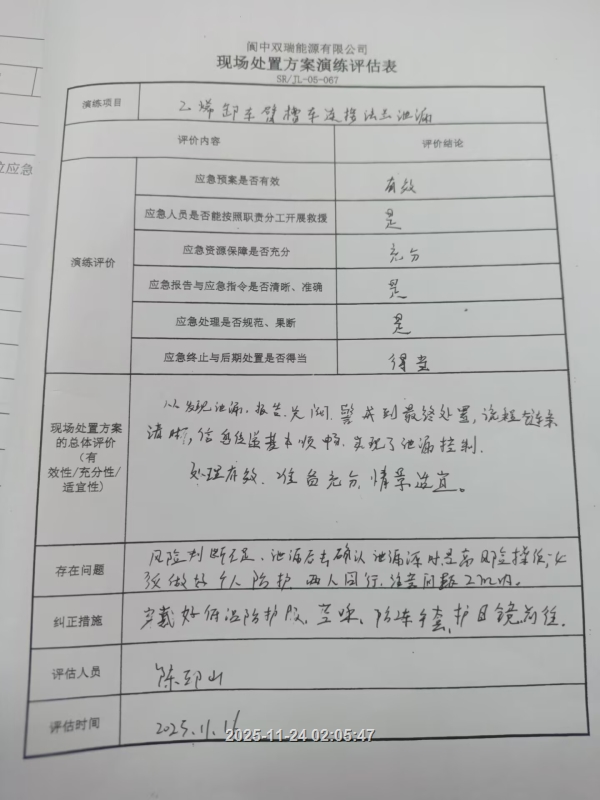 阆中双瑞能源有限公司
现场处置方案演练评估表
SR/JL-05-067
演练项目
乙烯卸车臂槽车连接法兰泄漏
评价内容
评价结论
演练评价
应急预案是否有效
有效
应急人员是否能按照职责分工开展救援
是
应急资源保障是否充分
充分
应急报告与应急指令是否清晰、准确
是
应急处理是否规范、果断
是
应急终止与后期处置是否得当
得当
现场处置方案
的总体评价
（有
效性/充分性/
适宜性）
从发现泄漏、报告、关阀、警戒到最终处置，流程链条
清晰，信息传递基本顺畅，实现了泄漏控制。
处理有效，准备充分，情景适宜。
存在问题
风险判断不足，泄漏后去确认泄漏源时是高风险操作，必
须做好个人防护，两人同行，
纠正措施
穿戴好低温防护服、面罩、防冻手套、护目镜前往。
评估人员
评估时间
2025.11.16
2025-11-24 02:05:47
位应急